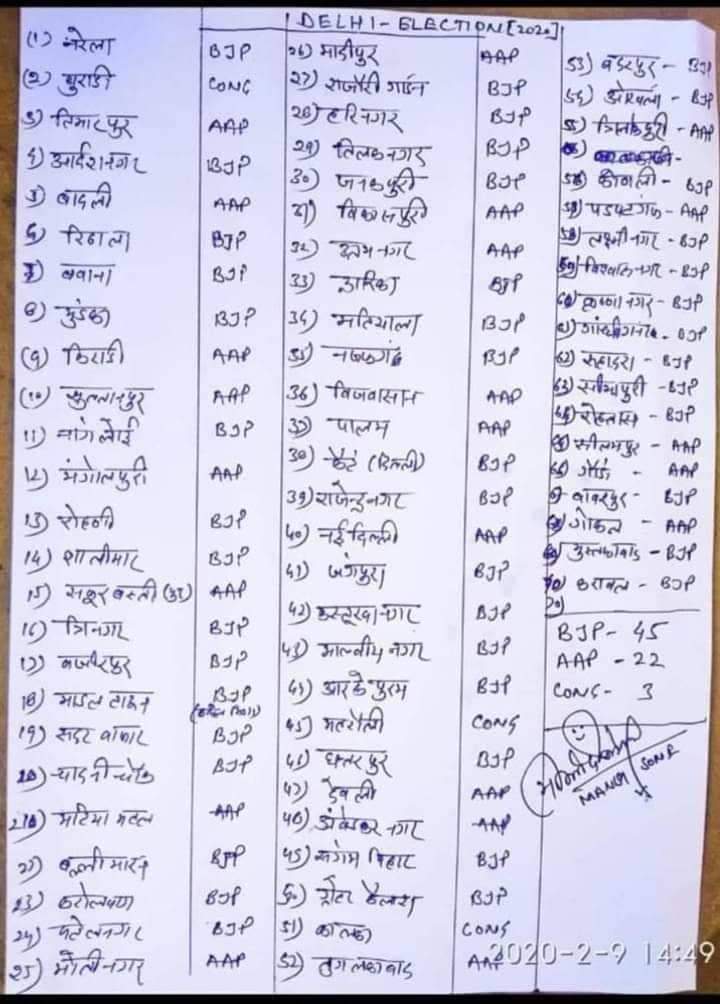 DELHI - ELECTION [2020]
(1) नरेला BJP
(2) बुराडी CONG
3) तिमारपुर AAP
4) आर्दशनगर BJP
5) बादली AAP
6) रिठाला BJP
7) बवाना BJP
8) मुंडका BJP
(9) किराडी AAP
(10) सुल्तानपुर AAP
11) नांगलोई BJP
12) मंगोलपुरी AAP
13) रोहणी BJP
14) शालीमार BJP
15) शकूर बस्ती AAP
16) त्रिनगर BJP
17) वजीरपुर BJP
18) माडल टाऊन BJP
19) सदर बाजार BJP
20) चादनी चौक BJP
21) मटिया महल AAP
22) बल्लीमारन BJP
23) करोलबाग BJP
24) पटेलनगर BJP
25) मोतीनगर AAP
26) मादीपुर AAP
27) राजौरी गार्डन BJP
28) हरिनगर BJP
29) तिलकनगर BJP
30) जनकपुरी BJP
31) विकासपुरी AAP
32) उत्तम नगर AAP
33) द्वारिका BJP
34) मटियाला BJP
35) नजफगढ़ BJP
36) बिजवासान AAP
37) पालम AAP
38) कैंट (दिल्ली) BJP
39) राजेन्द्रनगर BJP
40) नई दिल्ली AAP
41) जंगपुरा BJP
42) कस्तूरबा नगर BJP
43) मालवीय नगर BJP
44) आर के पुरम BJP
45) महरौली CONG
46) छत्तरपुर BJP
47) देवली AAP
48) अंबेडकर नगर AAP
49) संगम विहार BJP
50) ग्रेटर कैलाश BJP
51) कालका CONG
52) तुगलकाबाद AAP
53) बदरपुर - BJP
54) ओखला - BJP
55) त्रिलोकपुरी - AAP
56) कोंडली - BJP
57) पडपटगंज - AAP
58) लक्ष्मी नगर - BJP
59) विश्वास नगर - BJP
60) कृष्णा नगर - BJP
61) गांधीनगर - BJP
62) शहादरा - BJP
63) सीमापुरी - BJP
64) रोहतास - BJP
65) सीलमपुर - AAP
66) गौंडा - AAP
67) बाबरपुर - BJP
68) गोकल - AAP
69) मुस्तफाबाद - BJP
70) करावल - BJP
70)
BJP - 45
AAP - 22
CONG - 3
MANOJ SONE
2020-2-9 14:49